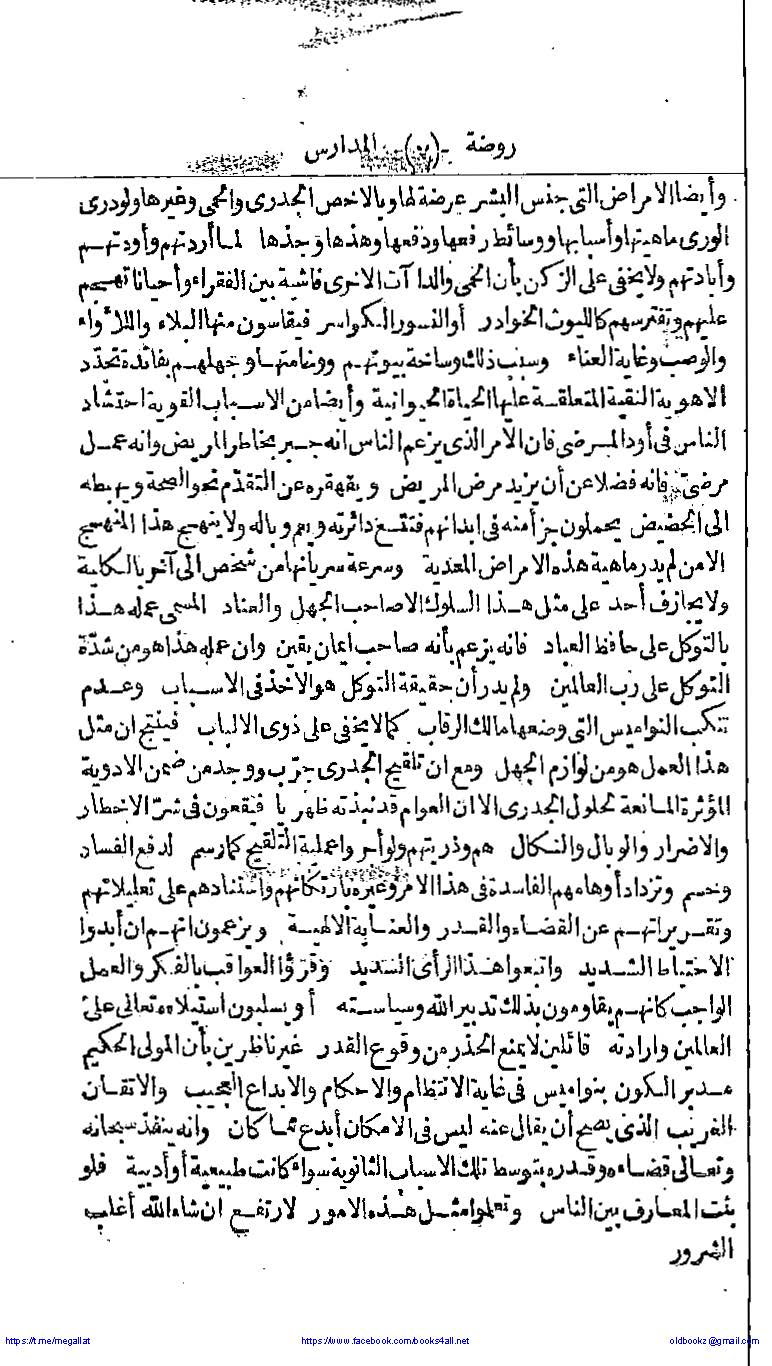 روضة -(  )- المدارس
وأيضا الامراض التى جنس البشر عرضة لها وبالاخص الجدرى والحمى وغيرها ولو درى
الورى ماهيتها وأسبابها ووسائط رفعها ودفعها وهذها وجذها لما أردتهم وأودتهم
وأبادتهم ولا يخفى على الزكن بأن الحمى والدا آت الاخرى فاشية بين الفقراء وأحيانا تهجم
عليهم وتفترسهم كالليوث الخوادر أو النسور الكواسر فيقاسون منها البلاء واللا واء
والوصب وغاية العناء وسبب ذلك وساخة بيوتهم ووخامتها وجهلهم بفائدة تجدّد
الاهوية النقية المتعلقة عليها الحياة الحيوانية وأيضا من الاسباب القوية احتشاد
الناس فى أود المرضى فان الامر الذى يزعم الناس انه جبر بخاطر المريض وانه عمل
مرضىّ فانه فضلا عن أن يزيد مرض المريض ويقهقره عن التقدّم نحو الصحة ويهبطه
الى الحضيض يحملون جزأ منه فى ابدانهم فتتسع دائرته ويعم وباله ولا ينهج هذا المنهج
الا من لم يدر ماهية هذه الامراض المعدية وسرعة سريانها من شخص الى آخر بالكلية
ولا يجازف أحد على مثل هذا السلوك الا صاحب الجهل والعناد المسمى عمله هذا
بالتوكل على حافظ العباد فانه يزعم بأنه صاحب ايمان يقين وان عمله هذا هو من شدّة
التوكل على رب العالمين ولم يدر أن حقيقة التوكل هو الاخذ فى الاسباب وعدم
تنكب النواميس التى وضعها مالك الرقاب كما لا يخفى على ذوى الالباب فينتج ان مثل
هذا العمل هو من لوازم الجهل ومع ان تلقيح الجدرى جرّب ووجد من ضمن الادوية
المؤثرة المانعة لحلول الجدرى الا ان العوام قد نبذته ظهريا فيقعون فى شرّ الاخطار
والاضرار والوبال والنكال هم وذريتهم ولو أجروا عملية التلقيح كما رسم لدفع الفساد
وحسم وتزداد أوهامهم الفاسدة فى هذا الامر وغيره بارتكانهم واستنادهم على تعليلاتهم
وتقريراتهم عن القضاء والقدر والعناية الالهية ويزعمون انهم ان أبدوا
الاحتياط الشديد واتبعوا هذا الرأى السديد وقرّوا العواقب بالفكر والعمل
الواجب كانهم يقاومون بذلك تدبير الله وسياسته أو يسلبون استيلاءه تعالى على
العالمين وارادته قائلين لا يمنع الحذر من وقوع القدر غير ناظرين بأن المولى الحكيم
مدبر الكون بنواميس فى غاية الانتظام والاحكام والابداع العجيب والاتقان
الغريب الذى يصح أن يقال عنه ليس فى الامكان أبدع مما كان وانه ينفذ سبحانه
وتعالى قضاءه وقدره بتوسط تلك الاسباب الثانوية سواء كانت طبيعية أو أدبية فلو
بثت المعارف بين الناس وتعلموا مثل هذه الامور لارتفع ان شاء الله أغلب
الشرور
https://t.me/megallat
https://www.facebook.com/books4all.net
oldbookz@gmail.com